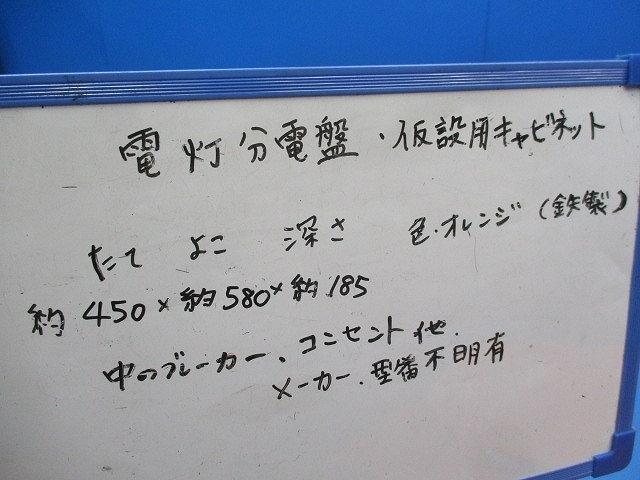 電灯分電盤・仮設用キャビネット
たて よこ 深さ 色・オレンジ(鉄製)
約450×約580×約185
中のブレーカー、コンセント他.
メーカー.型番不明有